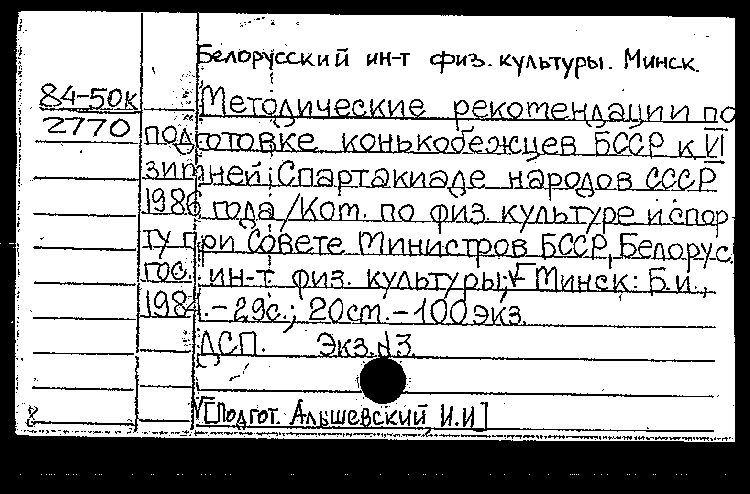 Белорусский ин-т физ. культуры. Минск.
84-50к
Методические рекомендации по
2770
подготовке конькобежцев БССР к VI
зимней Спартакиаде народов СССР
1986 года /Ком. по физ. культуре и спор
ту при Совете Министров БССР, Белорус.
гос. ин-т физ. культуры; Минск: Б.и.,
1984.-29с.; 20см.-100экз.
ДСП. Экз.N3.
[Подгот. Альшевский, И.И]
8